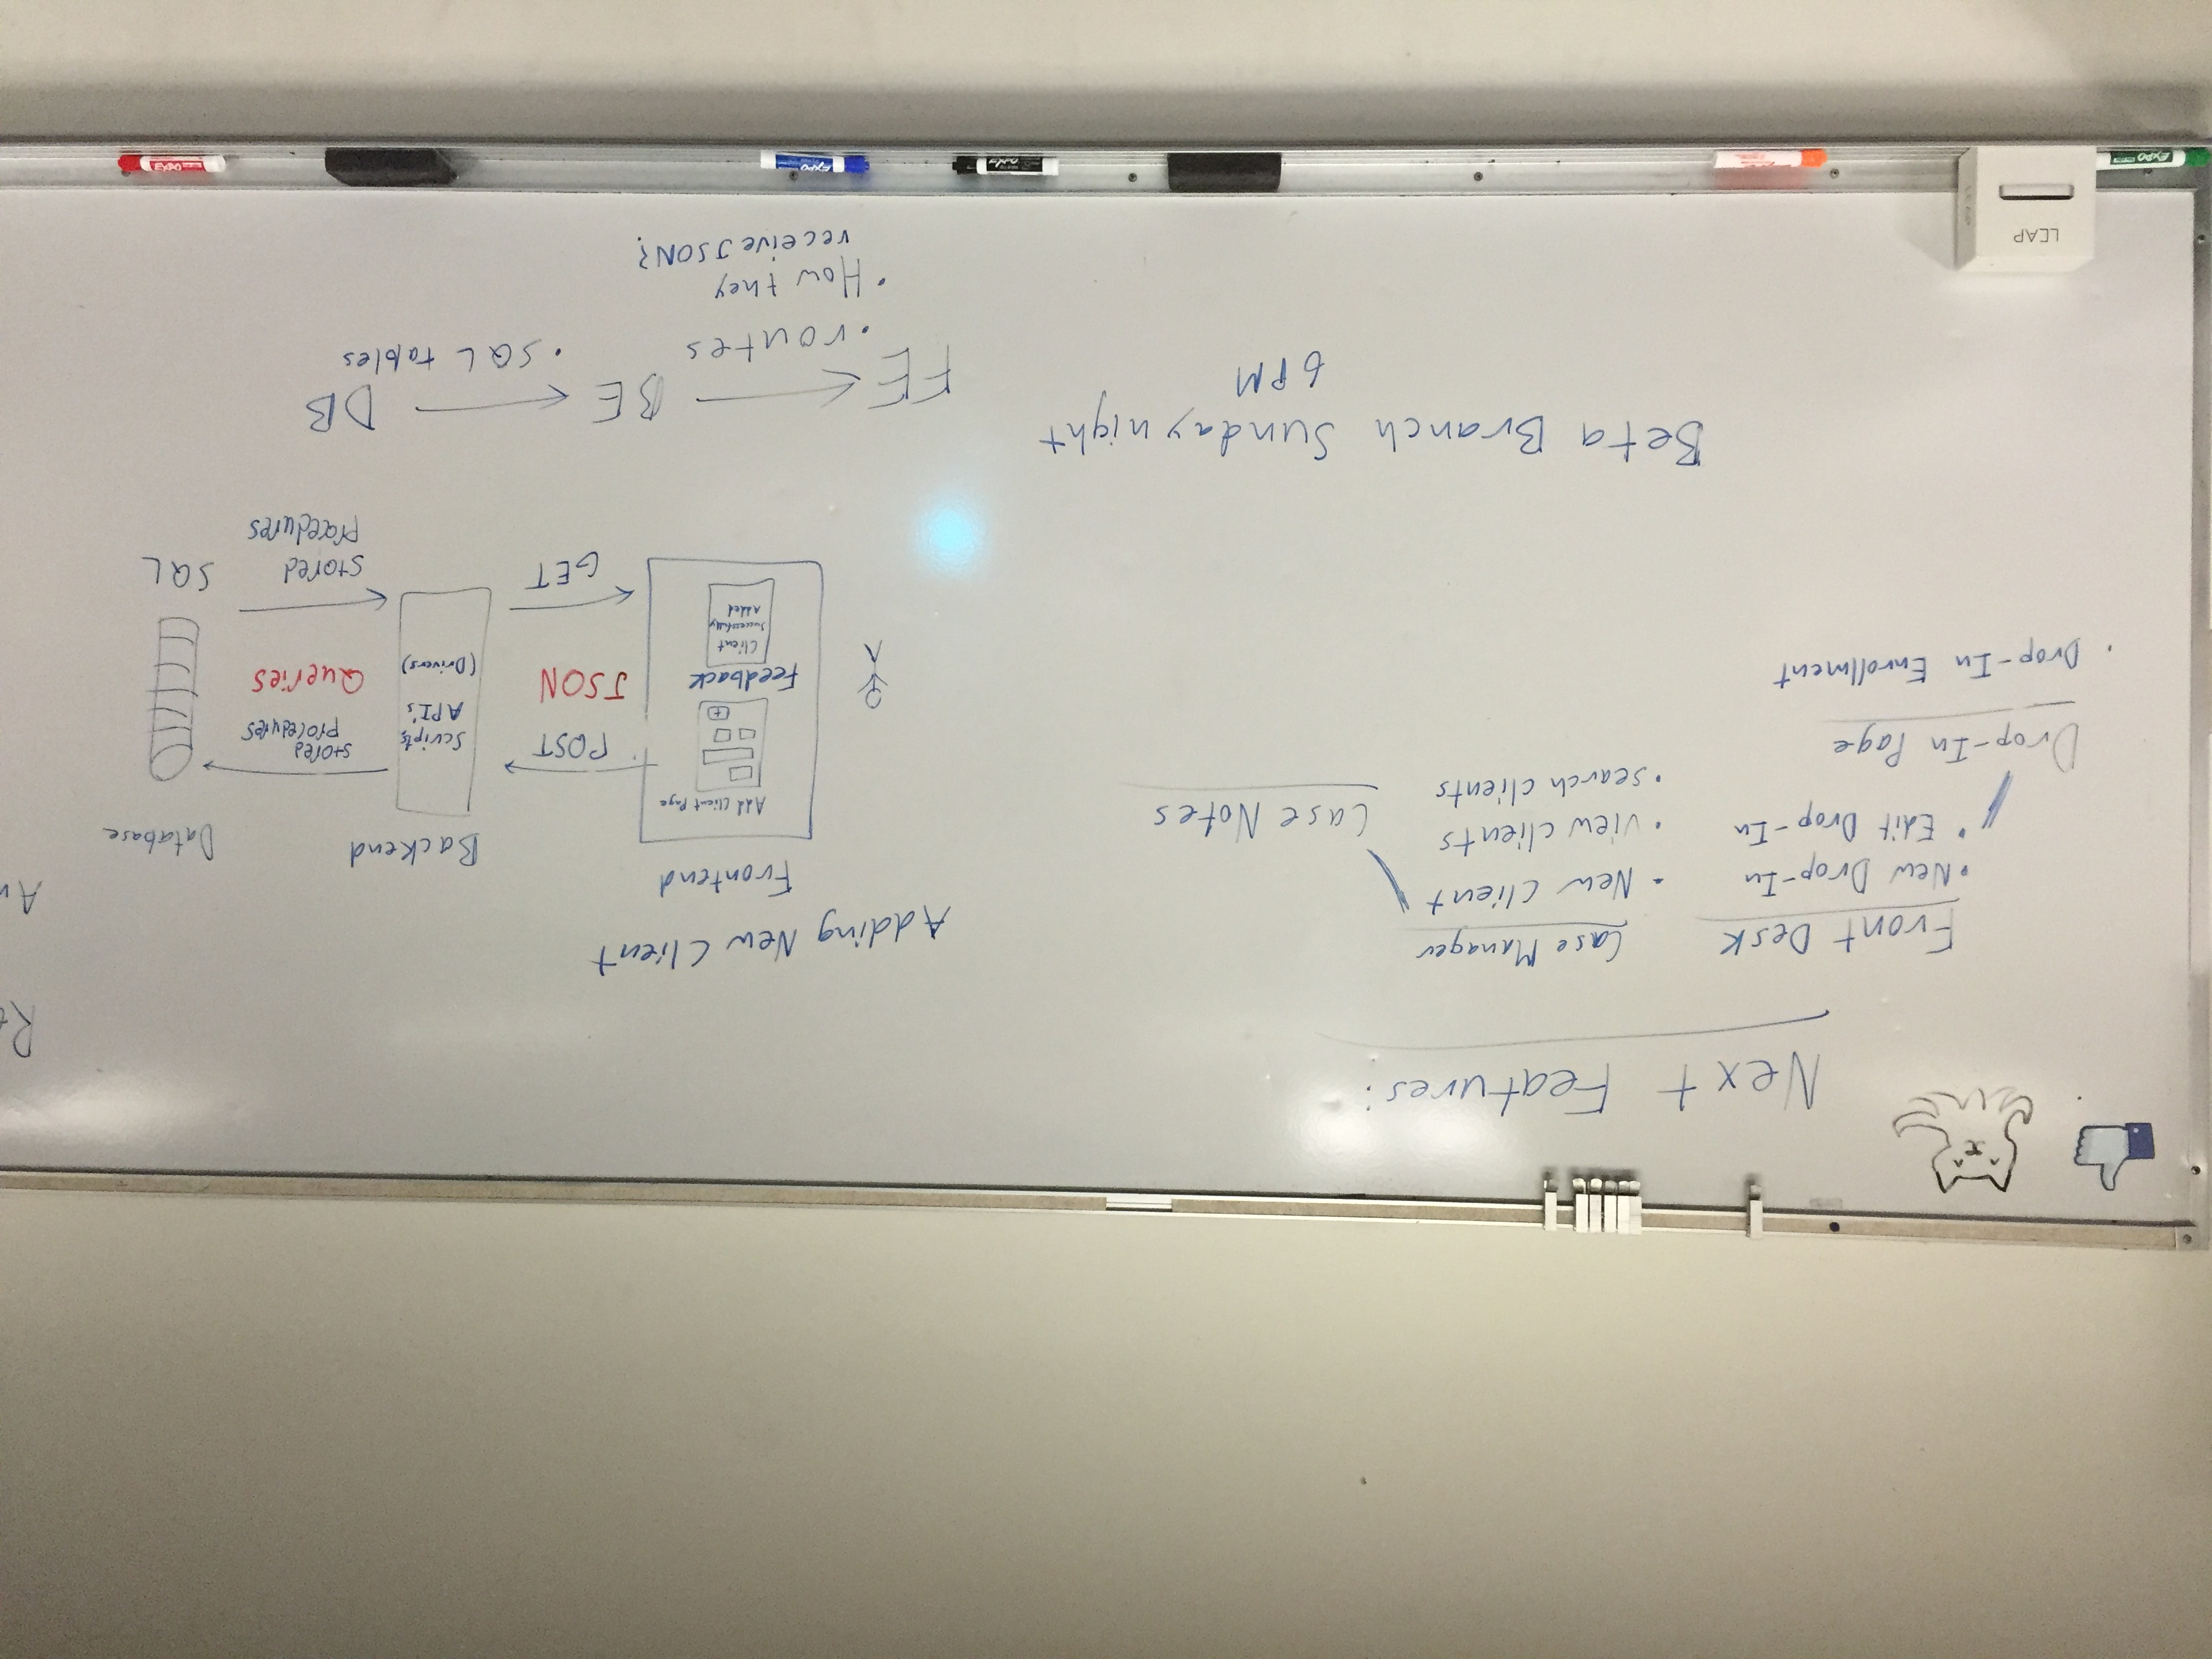 Next Features:
Front Desk
• New Drop-In
• Edit Drop-In
Drop-In Page
• Drop-In Enrollment
Case Manager
• New Client
• view clients
• search clients
Case Notes
Beta Branch Sunday night
6 PM
Adding New Client
Frontend
Add Client Page
Feedback
Client
Successfully
Added
POST
JSON
GET
Backend
Scripts,
API's
(Drivers)
stored
procedures
Queries
stored
procedures
Database
SQL
FE ← BE ← DB
• routes
• SQL tables
• How they
receive JSON?
LEAP
EXPO
EXPO
EXPO
EXPO